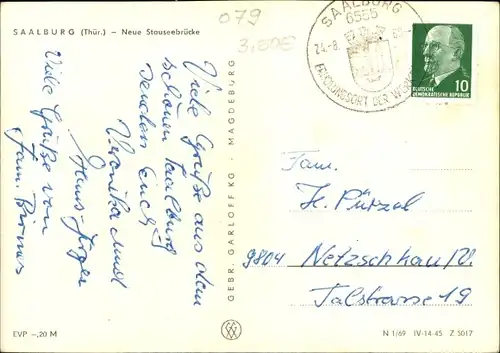 SAALBURG (Thür.) — Neue Stauseebrücke
079
3,50€
SAALBURG
6555
ERHOLUNGSORT DER WERKTÄTIGEN
10
DEUTSCHE
DEMOKRATISCHE REPUBLIK
Viele Grüße aus dem
schönen Saalburg
senden Euch
Veronika und
Hans-Jürgen
Viele Grüße von
Fam.
GEBR. GARLOFF KG · MAGDEBURG
Fam.
H. Pürzel
9804 Netzschkau/V.
Talstrasse 19
EVP —,20 M
N 1/69 IV-14-45 Z 5017